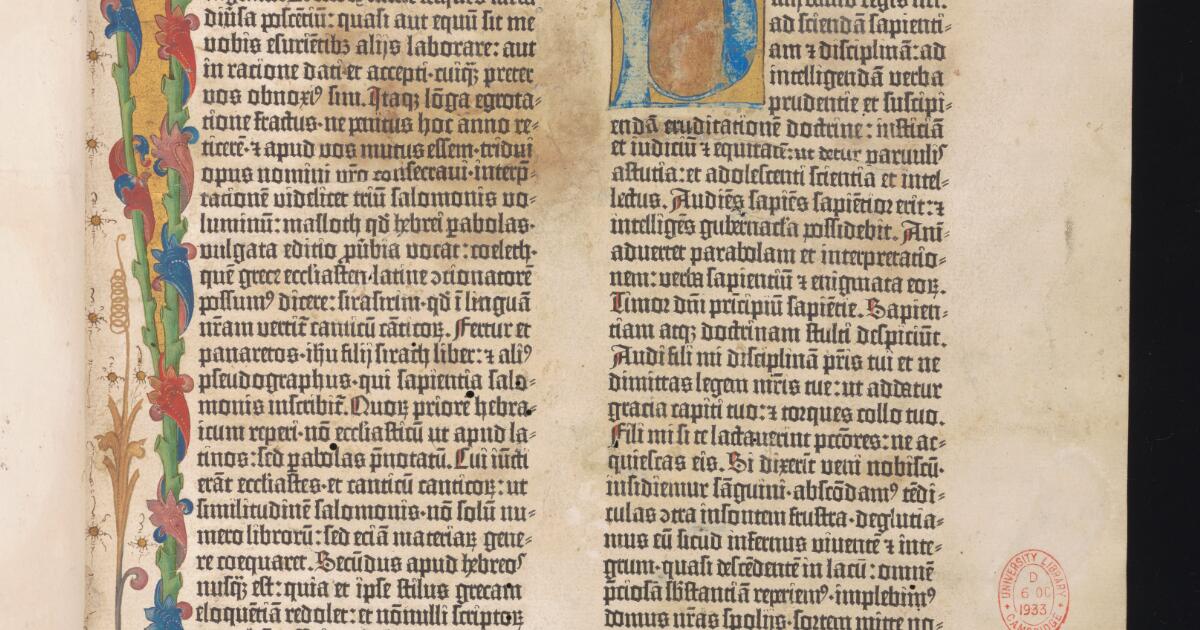 diũsa poscẽtiũ: quasi aut equũ sit me
vobis esuriẽtibꝫ alijs laborare: aut
in racione dati et accepti·cuiqꝫ preter
vos obnoxiꝰ sim. Itaqꝫ lõga egrota⸗
tione fractus·ne penitus hoc anno re⸗
ticerẽ·⁊ apud vos mutus essem·tridui
opus nomini vr̃o consecraui·interp̃⸗
tationẽ videlicet triũ salomonis vo⸗
luminũ: masloth qd̃ hebrei ꝑabolas·
vulgata editio ꝓũbia vocat: coeleth·
quẽ grece ecclĩasten·latine ↄcionatorẽ
possumꝰ dicere: sirasirim·qd̃ ĩ linguã
nr̃am vertit̃ canticũ cãticoꝝ. Fertur et
panaretos·ihu filij sirach liber: ⁊ aliꝰ
pseudographus·qui sapientia salo⸗
monis inscribit̃. Quoꝝ priorẽ hebra⸗
icum reperi·nõ ecclĩasticũ ut apud la⸗
tinos: sed ꝑabolas p̃notatũ. Cui iũcti
erãt ecclĩastes·et canticũ canticoꝝ: ut
similitudinẽ salomonis·nõ solũ nu⸗
mero librorũ: sed eciã materiaꝝ gene⸗
re coequaret. Secũdus apud hebreos
nusqꝫ est: quia et ipse stilus grecam
eloquẽtiã redolet: et nõnulli scriptoꝝ
ad sciendã sapienti⸗
am ⁊ disciplinã: ad
intelligendã verba
prudentie et suscipi⸗
endã eruditationẽ doctrine: iusticiã
et iudiciũ ⁊ equitatẽ: ut detur parvulis
astutia: et adolescenti scientia et intel⸗
lectus. Audiẽs sapiẽs sapiẽtior erit: ⁊
intelligẽs gubernacla possidebit. Ani⸗
advertet parabolam et interpretatio⸗
nem: verba sapientiũ ⁊ enigmata eoꝝ.
Timor dñi principiũ sapiẽtie. Sapien⸗
tiam atqꝫ doctrinam stulti despiciũt.
Audi fili mi disciplinã pr̃is tui et ne
dimittas legem mr̃is tue: ut addatur
gracia capiti tuo: ⁊ torques collo tuo.
Fili mi si te lactaverint pctõres: ne ac⸗
quiescas eis. Si dixerit veni nobiscũ·
insidiemur sãguini·abscõdamꝰ tẽdi⸗
culas ↄtra insontem frustra·deglutia⸗
mus eũ sicud infernus viventẽ ⁊ inte⸗
grum·quasi descẽdentẽ in lacũ: omnẽ
ꝓciosã sb̃stanciã reperiemꝰ·implebimꝰ
domus nr̃as spolijs·sortem mitte no⸗
UNIVERSITY LIBRARY
D
6 OC
1933
CAMBRIDGE